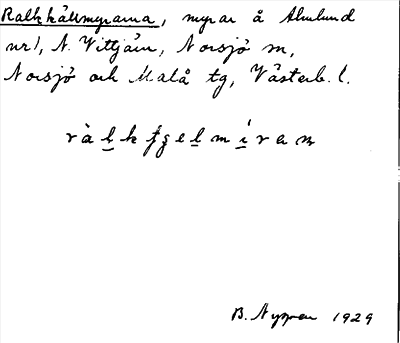 Ralkkällmyrarna, myrar å Amlund
nr 1, N. Vittjärn, Norsjö sn,
Norsjö och Malå tg, Västerb. l.
r à l k f ç e l m í r a n
B. Nygren 1929